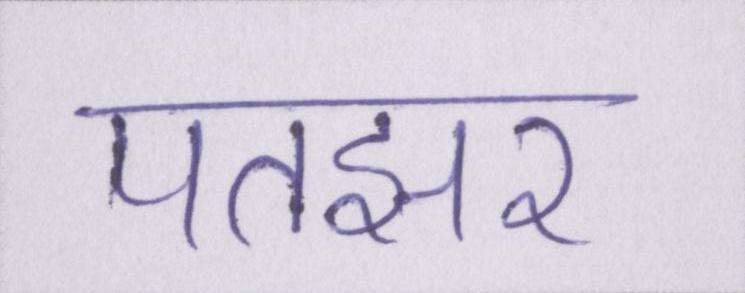 पतझर